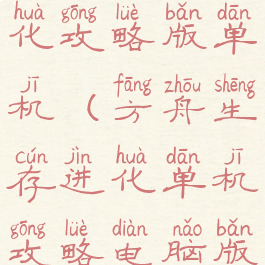 huà gōng lüè bǎn dān
化攻略版单
jī fāng zhōu shēng
机（方舟生
cún jìn huà dān jī
存进化单机
gōng lüè diàn nǎo bǎn
攻略电脑版